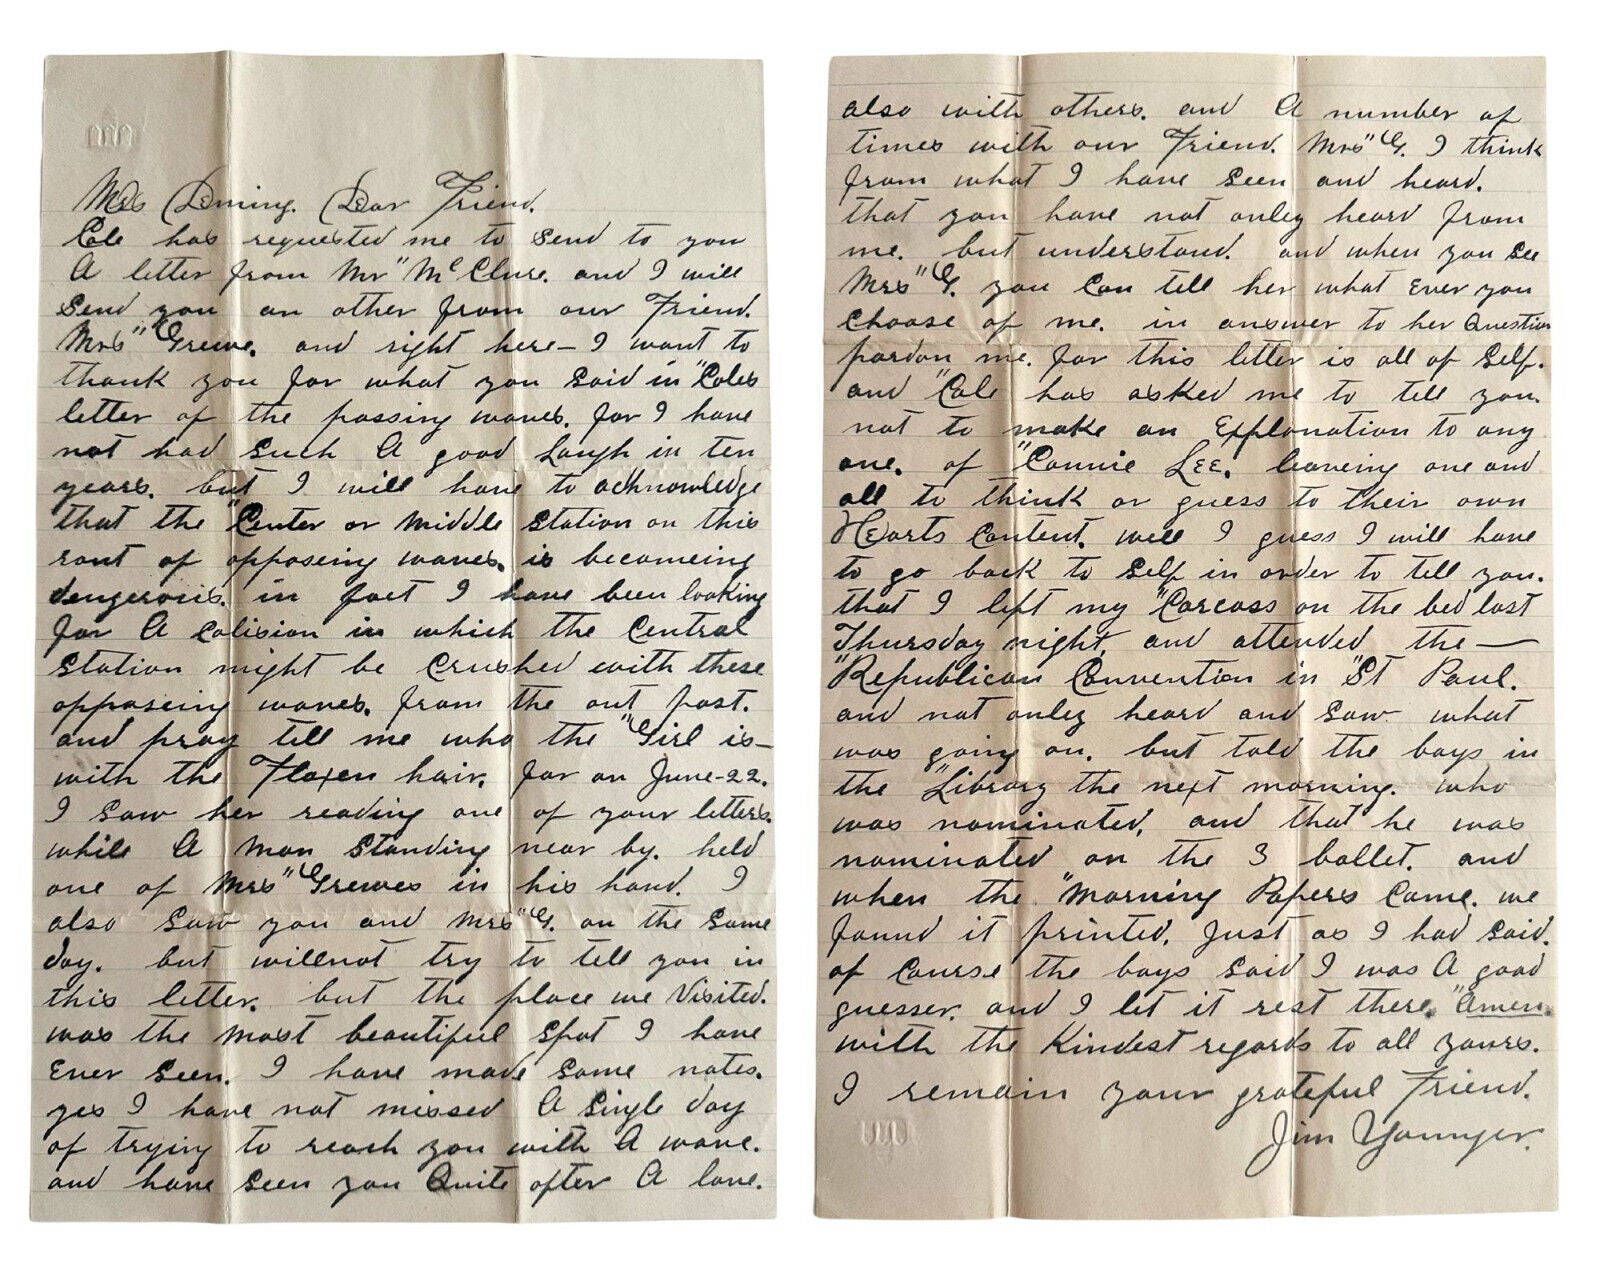 Mrs Deming. Dear Friend.
Cole has requested me to send to you
A letter from Mr" McClure. and I will
send you an other from our Friend.
Mrs" Grewe. and right here — I want to
thank you for what you said in "Coles
letter of the passing waves. for I have
not had such A good Laugh in ten
years. but I will have to acknowledge
that the "Center or middle station on this
rout of opposeing waves. is becomeing
dengerous. in fact I have been looking
for A colision in which the central
station might be crushed with these
opposeing waves. from the out post.
and pray tell me who the "Girl is —
with the Flaxen hair. for on June-22.
I saw her reading one of your letters.
while A man standing near by. held
one of Mrs" Grewes in his hand. I
also saw you and Mrs" G. on the same
day. but willnot try to tell you in
this letter. but the place we Visited.
was the most beautiful spot I have
Ever seen. I have made some notes.
yes I have not missed A single day
of trying to reach you with A wave.
and have seen you Quite often A lone.
also with others. and A number of
times with our Friend. Mrs" G. I think
from what I have seen and heard.
that you have not onley heard from
me. but understand. and when you see
Mrs" G. you can tell her what ever you
choose of me. in answer to her Question
pardon me. for this letter is all of self.
and "Cole has asked me to tell you.
not to make an Explonation to any
one. of "Connie LEE. leaveing one and
all to think or guess to their own
Hearts content. well I guess I will have
to go back to self in order to tell you.
that I left my "Carcass on the bed last
Thursday night, and attended the —
"Republican Convention in "St Paul.
and not onley heard and saw what
was going on. but told the boys in
the "Library the next morning. who
was nominated, and that he was
nominated on the 3 ballet. and
when the "Morning Papers Came. we
found it printed. Just as I had said.
of course the boys said I was A good
guesser. and I let it rest there. "Amen.
with the Kindest regards to all yours.
I remain your grateful Friend.
Jim Younger.